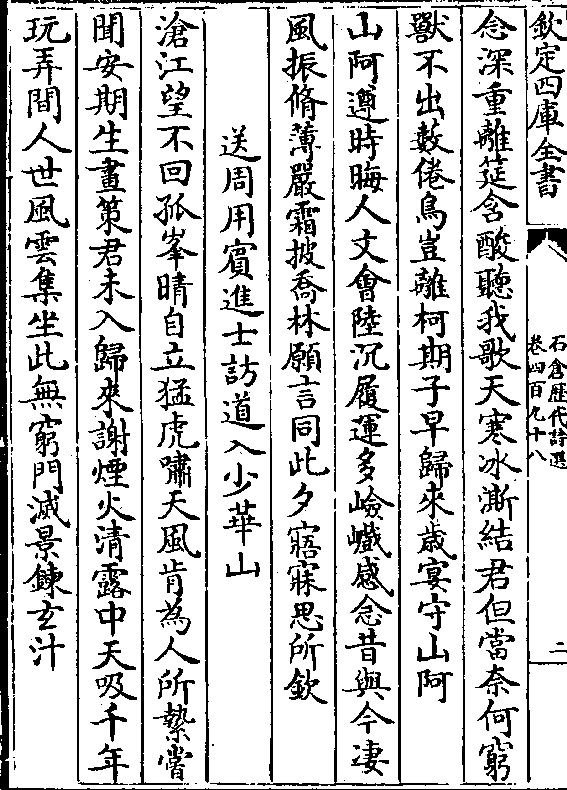 欽定四庫全書
石倉歷代詩選
卷四百九十八
二
念深重離筵含酸聽我歌天寒冰澌結君但當奈何窮
獸不出藪倦鳥豈離柯期子早歸來歲宴守山阿
山阿遵時晦人文會陸沉履運多嶮巇感念昔與今凄
風振脩薄嚴霜披喬林願言同此夕寤寐思所欽
送周用賓進士訪道入少華山
滄江望不回孤峯晴自立猛虎嘯天風肯為人所縶嘗
聞安期生畫策君未入歸來謝煙火清露中天吸千年
玩弄間人世風雲集坐此無窮門滅景鍊玄汁